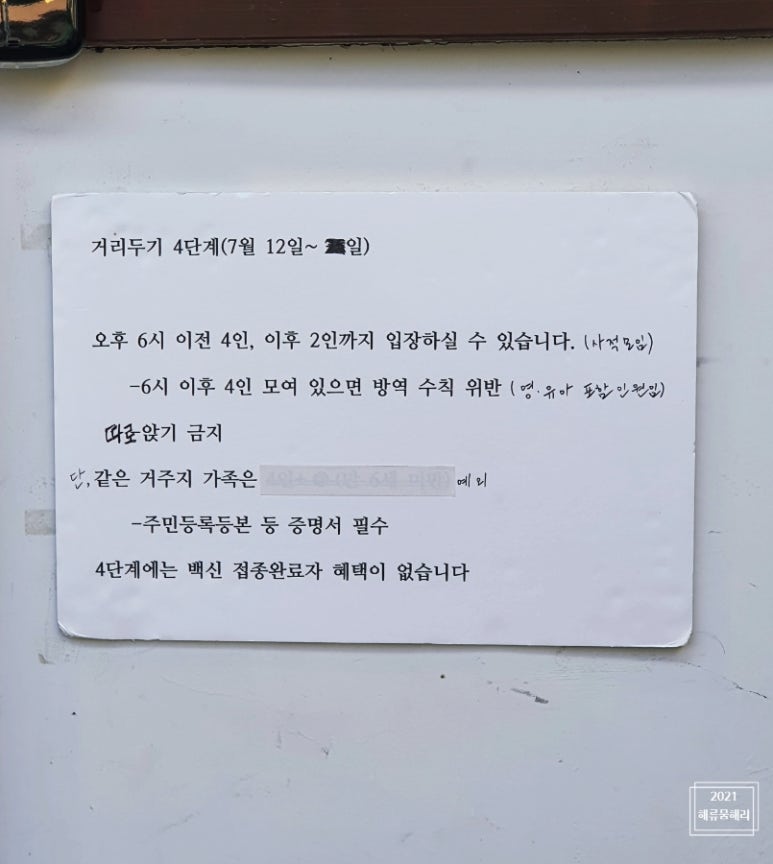 거리두기 4단계(7월 12일~ 일)
오후 6시 이전 4인, 이후 2인까지 입장하실 수 있습니다. (사적모임)
-6시 이후 4인 모여 있으면 방역 수칙 위반 (영·유아 포함 인원임)
따로앉기 금지
단,같은 거주지 가족은 예외
-주민등록등본 등 증명서 필수
4단계에는 백신 접종완료자 혜택이 없습니다
2021
해류뭄해리